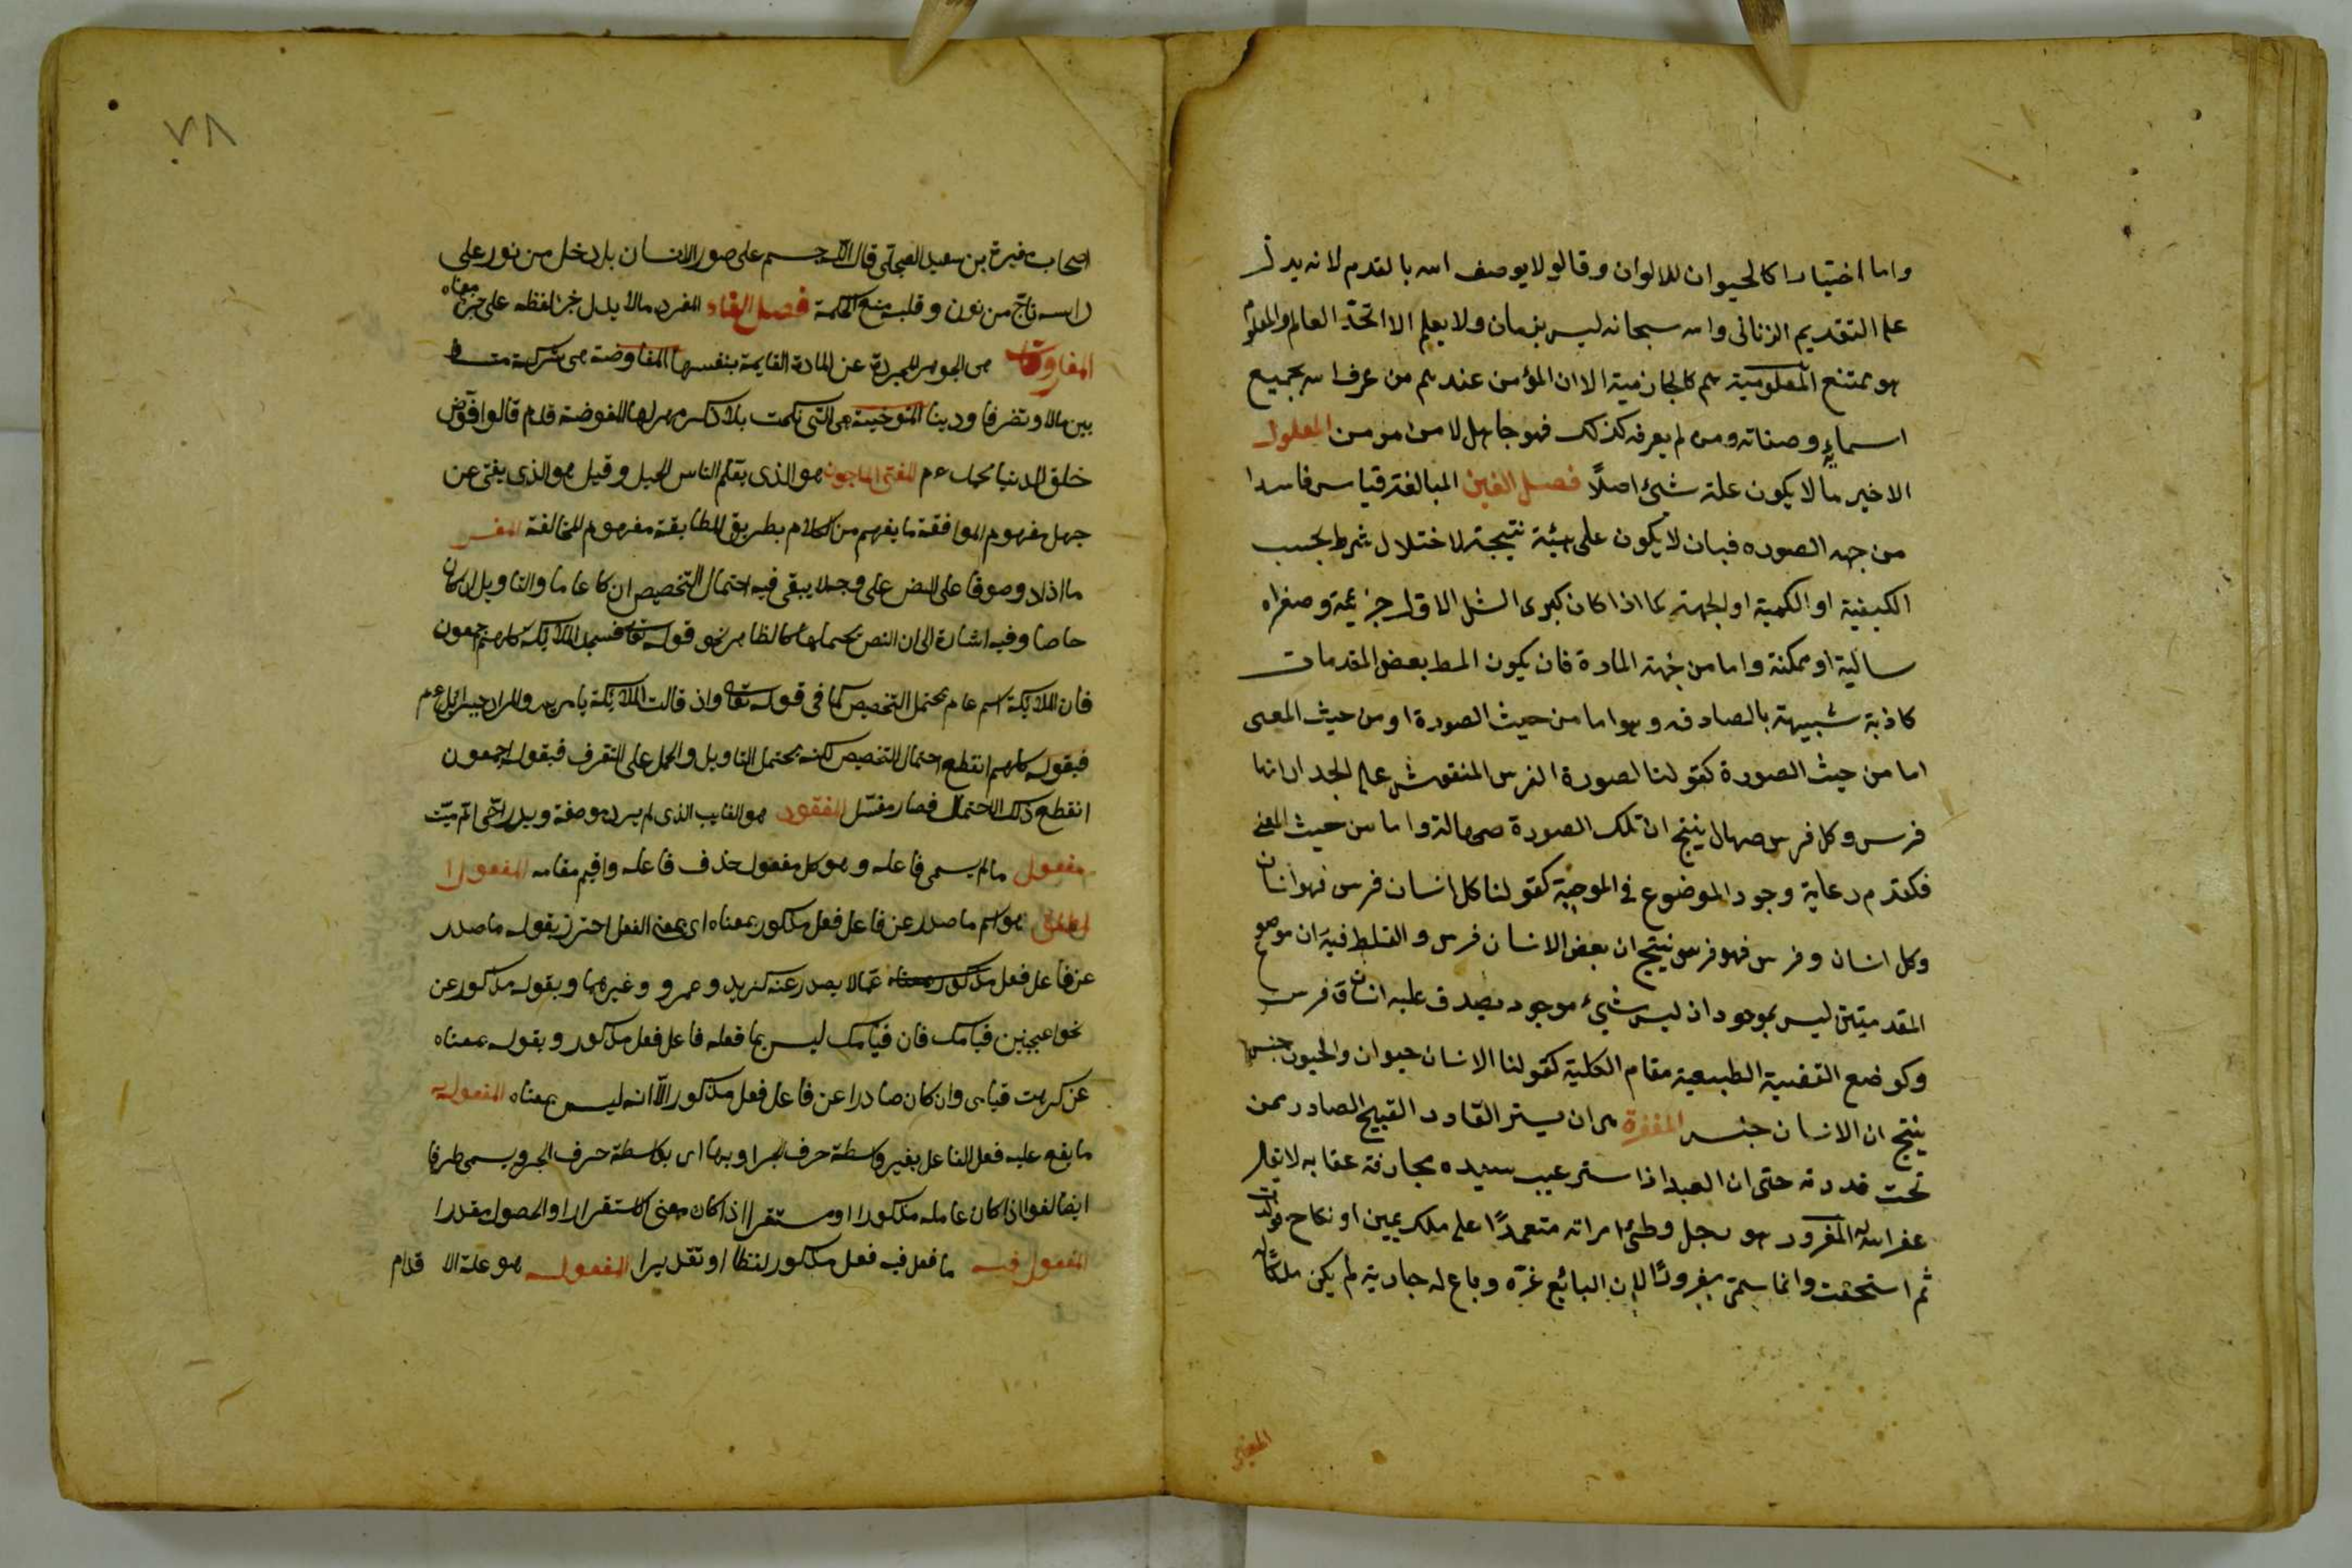 واما اختيارا كالحيوان للالوان وقالو لا يوصف اسه بالقدم لانه يدل
على التقديم الزنانى واسه سبحانه ليس بزمان ولا يعلم الا اتحد العالم والمعلوم
هو ممتنع المعلومية هم كالجازمية الا ان المؤمن عندهم من عرف اسه بجميع
اسمايه وصفاته ومن لم يعرفه كذلك فهو جاهل لا من امو من المعلول
الاخير ما لا يكون علة شئ اصلاً فصل الغين المبالغة قياس فاسدا
من جهه الصوره فبان لا يكون على هيئة نتيجة لاختلال شرط بحسب
الكيفية او الكمية او الجهة كما اذا كان كبرى الشل الاول جزئية وصغراه
سالبة او ممكنة واما من جهة المادة فان يكون المط بعض المقدمات
كاذبة شبيهة بالصادقه وهو اما من حيث الصورة او من حيث المعنى
اما من حيث الصورة كقولنا لصورة الفرس المنقوش على الجدار انها
فرس وكل فرس صهال ينتج ان تلك الصورة صهالة واما من حيث المعنى
فكقدم رعاية وجود الموضوع في الموجبة كقولنا كل انسان فرس فهو انسان
وكل انسان وفرس فهو فرس نيتج ان بعض الانسان فرس والغلط فيه ان موضوع
المقدميتين ليس بموجود اذ ليس شيء موجود يصدق عليه انسان فرس
وكوضع القضية الطبيعية مقام الكلية كقولنا الانسان حيوان والحيوان جنس
ينتج ان الانسان جنس المغفرة هى ان يستر القادر القبيح الصادر ممن
تحت قدرته حتى ان العبد اذا ستر عيب سيده مخافة عقابه لا يقال
غفر اسه المغرور هو رجل وطئ امراته متعمدًا على ملك يمين او نكاح فولدت
ثم استحقت وانما سمى مغرورًا لان البائع غره وباع له جارية لم يكن ملكا له
المغيرية
٧٨
اصحاب مغيرة بن سعيد العجلى قال الله جسم على صور الانسان بل دخل من نور على
راسه تاج من نور وقلبه منبع الحكمة فصل الفاء المفرد ما لا يدل جزء لفظه على جزء معناه
المفارقات هى الجوهر المجردة عن المادة القايمة بنفسها المفاوضة هى شركة
بين مالا وتصرفا ودينا المفوضية هى التى نكحت بلا ذكر مهر لها المفوضة قدم قالوا فوض
خلق الدنيا محمد عم المفتى الماجون هو الذى يقلم الناس الحيل وقيل هو الذى يفتى عن
جهل مفهوم الموافقة ما يفهم من الكلام بطريق المطابقة مفهوم المخالفة المفسر
ما ازداد وضوحا على النص على وجه لا يبقى فيه احتمال التخصيص ان كا عاما والتاويل ان كان
خاصا وفيه اشارة الى ان النص يحملها كالظاهر نحو قوله تعا فسجد الملايكة كلهم اجمعون
فان الملايكة اسم عام يحتمل التخصيص كما فى قوله تعا واذ قالت الملايكة يا مريم والمراد جبرائيل عم
فبقوله كلهم انقطع احتمال التخصيص لكنه يحتمل التاويل والحمل على التفرق فبقوله اجمعون
انقطع ذلك الاحتمال فصار مفسرا المفقود هو الغايب الذى لم يدر موضعه ويدر احى ام ميت
مفعول ما لم يسمى فاعله وهو كل مفعول حذف فاعله واقيم مقامه المفعول ا
لمطلق هو اسم ما صدر عن فاعل فعل مذكور بمعناه اى بمعنى الفعل احترز بقوله ما صدر
عن فاعل فعل مذكور عما لا يصدر عنه كزيد وعمرو وغيرهما وبقوله مذكور عن
نحو اعجبنى قيامك فان قيامك ليس مما فعله فاعل فعل مذكور وبقوله بمعناه
عن كرهت قيامى وان كان صادرا عن فاعل فعل مذكور الا انه ليس بمعناه المفعول به
ما يقع عليه فعل الفاعل بغير واسطة حرف الجر او بها اى بواسطة حرف الجر ويسمى ظرفا
ايضا لغوا اذا كان عامله مذكورا او مستقرا اذا كان معنى الاستقرار او الحصول مقدرا
المفعول فيه ما فعل فيه فعل مذكور لفظا او تقديرا المفعول له هو علة الا قدام